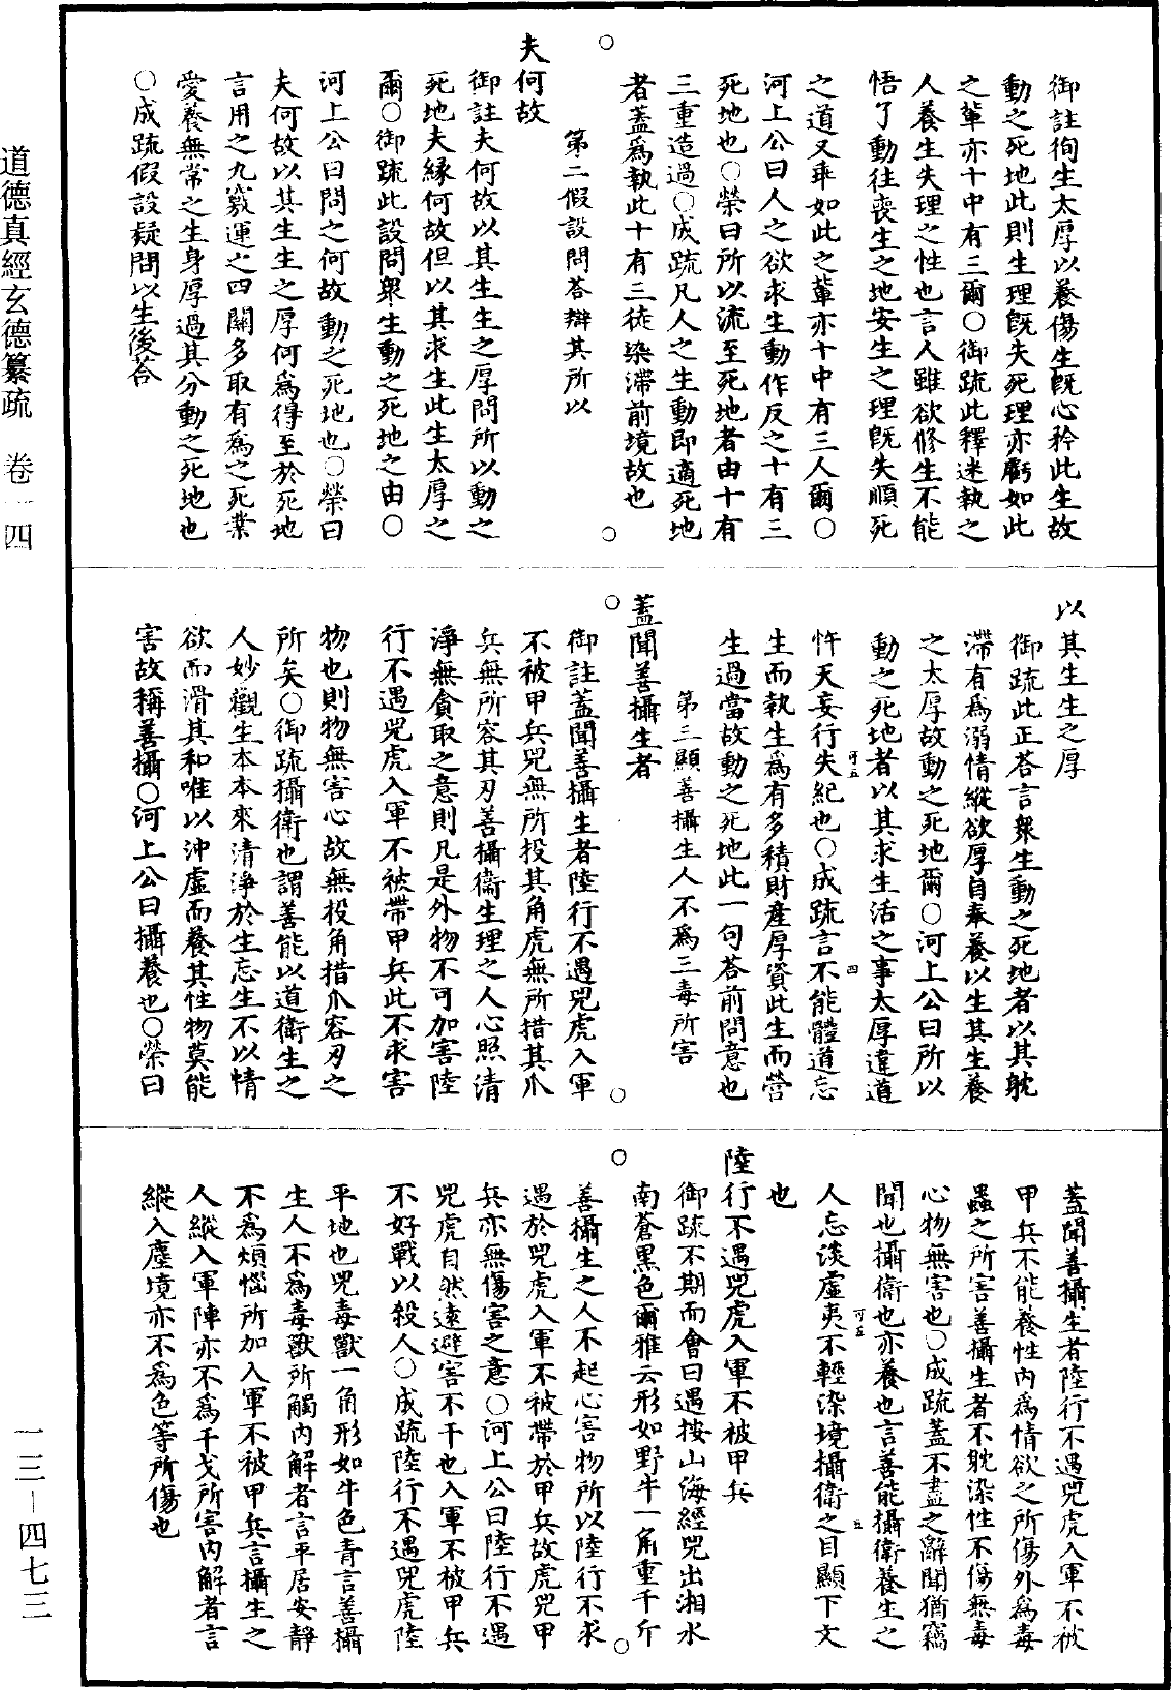 御註徇生太厚以養傷生旣心矜此生故
動之死地此則生理旣失死理亦虧如此
之輩亦十中有三爾○御疏此釋迷執之
人養生失理之性也言人雖欲修生不能
悟了動往喪生之地安生之理旣失順死
之道又乖如此之輩亦十中有三人爾○
河上公曰人之欲求生動作反之十有三
死地也○榮曰所以流至死地者由十有
三重造過○成疏凡人之生動即適死地
者蓋爲執此十有三徒染滯前境故也
第二假設問荅辯其所以
夫何故
御註夫何故以其生生之厚問所以動之
死地夫緣何故但以其求生此生太厚之
爾○御疏此設問衆生動之死地之由○
河上公曰問之何故動之死地也○榮曰
夫何故以其生生之厚何爲得至於死地
言用之九竅運之四關多取有爲之死業
愛養無常之生身厚過其分動之死地也
○成疏假設疑問以生後荅
以其生生之厚
御疏此正荅言衆生動之死地者以其躭
滯有爲溺情縱欲厚自奉養以生其生養
之太厚故動之死地爾○河上公曰所以
動之死地者以其求生活之事太厚違道
忤天妄行失紀也○成疏言不能體道忘
生而執生爲有多積財產厚資此生而營
生過當故動之死地此一句荅前問意也
第三顯善攝生人不爲三毒所害
蓋聞善攝生者
御註蓋聞善攝生者陸行不遇兕虎入軍
不被甲兵兕無所投其角虎無所措其爪
兵無所容其刃善攝衞生理之人心照清
淨無貪取之意則凡是外物不可加害陸
行不遇兕虎入軍不被帶甲兵此不求害
物也則物無害心故無投角措爪容刃之
所矣○御疏攝衛也謂善能以道衛生之
人妙觀生本本來清淨於生忘生不以情
欲而滑其和唯以沖虛而養其性物莫能
害故稱善攝○河上公曰攝養也○榮曰
蓋聞善攝生者陸行不遇兕虎入軍不被
甲兵不能養性內爲情欲之所傷外爲毒
蟲之所害善攝生者不躭染性不傷無毒
心物無害也○成疏蓋不盡之辭聞猶竊
聞也攝衛也亦養也言善能攝衛養生之
人忘淡虛夷不輕染境攝衛之目顯下文
也
陸行不遇兕虎入軍不被甲兵
御疏不期而會曰遇按山海經兕出湘水
南蒼黑色爾雅云形如野牛一角重千斤
善攝生之人不起心害物所以陸行不求
遇於兕虎入軍不被帶於甲兵故虎兕甲
兵亦無傷害之意○河上公曰陸行不遇
兕虎自然遠避害不干也入軍不被甲兵
不好戰以殺人○成疏陸行不遇兕虎陸
平地也兕毒獸一角形如牛色青言善攝
生人不爲毒獸所觸內解者言平居安靜
不爲煩惱所加入軍不被甲兵言攝生之
人縱入軍陣亦不爲干戈所害內解者言
縱入塵境亦不爲色等所傷也
道德真經玄德纂疏 卷一四
一三－四七三